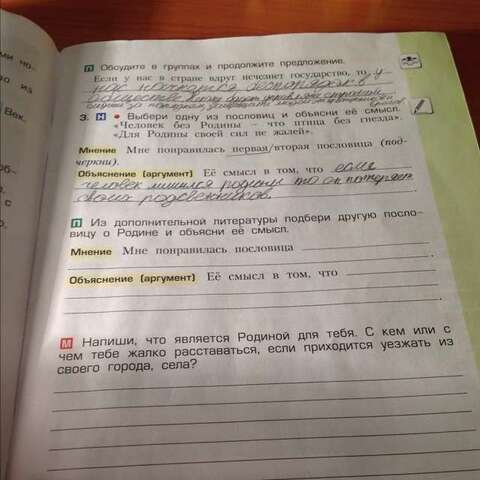 ми чо-
из
Век.
об-
, с
П Обсудите в группах и продолжите предложение.
Если у нас в стране вдруг исчезнет государство, то у
нас начнётся беспорядок в
обществе
3. Н • Выбери одну из пословиц и объясни её смысл.
«Человек без Родины – что птица без гнезда».
«Для Родины своей сил не жалей».
Мнение Мне понравилась первая/вторая пословица (под-
черкни).
Объяснение (аргумент) Её смысл в том, что если
человек лишился родины то он потерян
своих родственников.
П Из дополнительной литературы подбери другую посло-
вицу о Родине и объясни её смысл.
Мнение Мне понравилась пословица
Объяснение (аргумент) Её смысл в том, что
М Напиши, что является Родиной для тебя. С кем или с
чем тебе жалко расставаться, если приходится уезжать из
своего города, села?